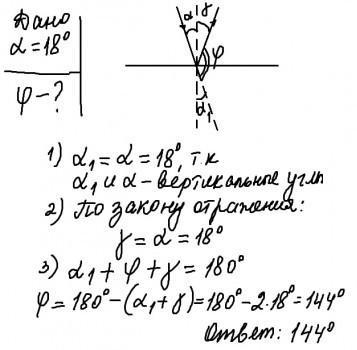 Дано
α=18°
φ-?
α γ
φ
α₁
1) α₁=α=18°, т.к
α₁ и α - вертикальные углы
2) По закону отражения:
γ=α=18°
3) α₁+φ+γ=180°
φ=180°-(α₁+γ)=180°-2·18°=144°
Ответ: 144°